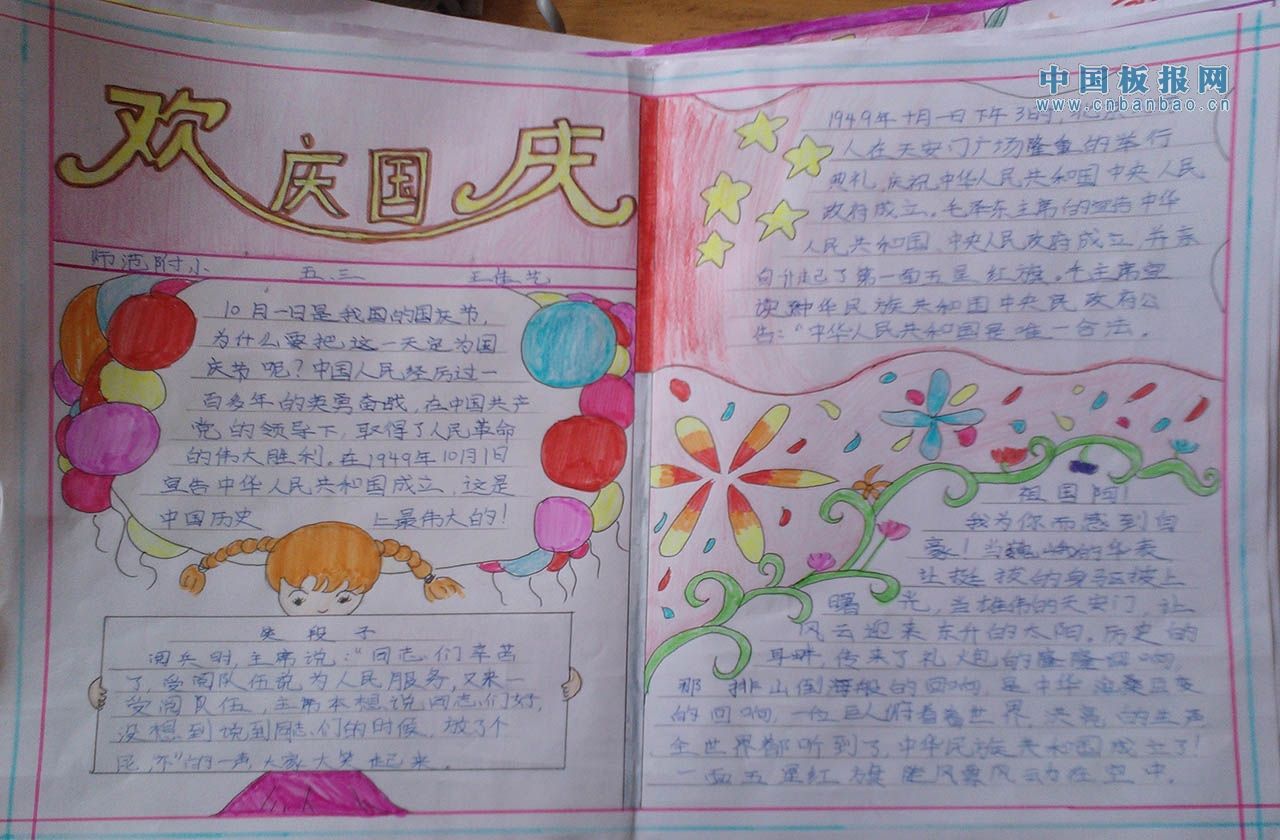 欢庆国庆
中国板报网
www.cnbanbao.cn
师范附小 五.三 王佳艺
10月一日是我国的国庆节,
为什么要把这一天定为国
庆节呢?中国人民经历过一
百多年的英勇奋战,在中国共产
党的领导下,取得了人民革命
的伟大胜利。在1949年10月1日
宣告中华人民共和国成立,这是
中国历史 上最伟大的!
笑段子
阅兵时,主席说:“同志们辛苦
了,受阅队伍说为人民服务,又来一
受阅队伍,主席本想说同志们好,
没想到说到同志们的时候,放了个
屁,“的一声大家大笑起来。
1949年十月一日下午3时,北京
人在天安门广场隆重的举行
典礼,庆祝中华人民共和国中央人民
政府成立。毛泽东主席的宣告中华
人民共和国,中央人民政府成立,并亲
自升起了第一面五星红旗。毛主席宣
读中华民族共和国中央民政府公
告:“中华人民共和国是唯一合法。
祖国阿!
我为你而感到自
豪!当巍峨的华表
让挺拔的身躯披上
曙光,当雄伟的天安门,让
风云迎来东升的太阳。历史的
耳畔,传来了礼炮的隆隆回响,
那排山倒海般的回响,是中华沧桑巨变
的回响,一位巨人俯看着世界,洪亮的生声
全世界都听到了,中华民族共和国成立了!
一面五星红旗 风飘风动在空中.